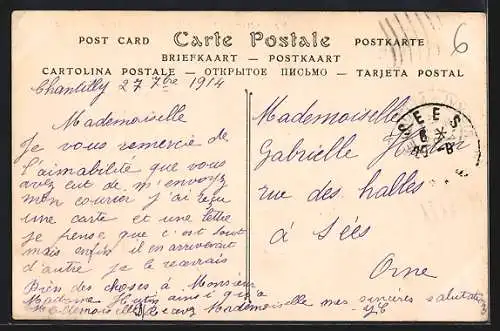 POST CARD Carte Postale POSTKARTE
BRIEFKAART — POSTKAART
CARTOLINA POSTALE — ОТКРЫТОЕ ПИСЬМО — TARJETA POSTAL
6
Chantilly 27 7bre 1914
Mademoiselle
Je vous remercie de
l'aimabilité que vous
avez eut de m'envoyz
mon courier j'ai reçu
une carte et une lettre
je pense que c'est tout
mais enfin il en arriverait
d'autre je le recevrais
Bien des choses à Monsieur
Madame Hutin ainsi qu'a
Mademoiselle Recevez Mademoiselle mes sincères salutations
Mademoiselle
Gabrielle
rue des halles
à Sées
Orne
SEES